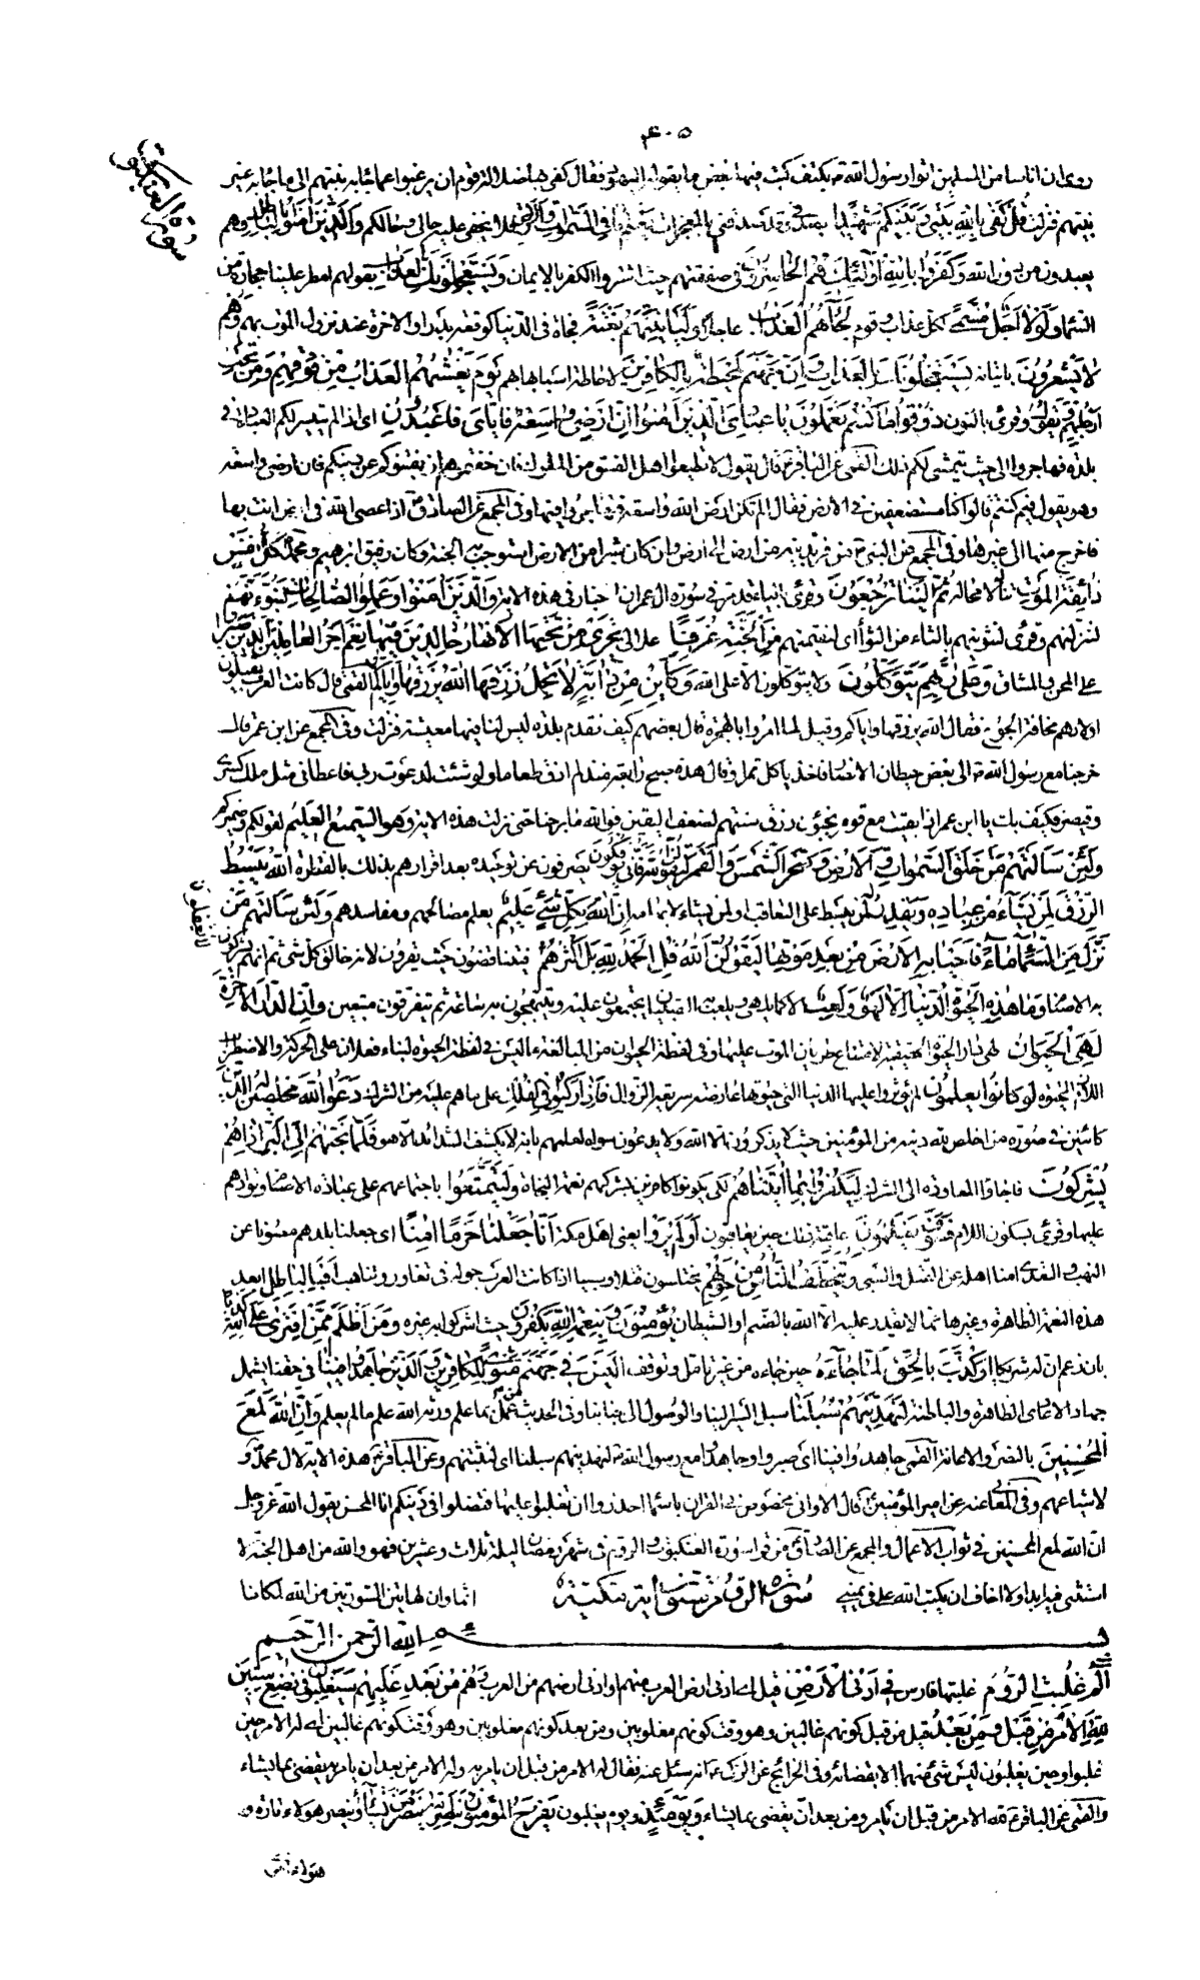 ٤٠٥
سورة العنكبوت
روى ان اناسا من المسلمين اتوا رسول الله ص بكتف كتب فيها بعض ما يقوله اليهود فقال كفى بها ضلالة قوم ان يرغبوا عما جاء به نبيهم الى ما جاء به غير
نبيهم فنزلت قُلْ كَفىٰ بِاللهِ بَيْنِي وَبَيْنَكُمْ شَهِيدًا بصدقى وقد صدقنى بالمعجزات يَعْلَمُ مَا فِي السَّمٰوَاتِ وَالْأَرْضِ فلا يخفى عليه حالى وحالكم وَالَّذِينَ اٰمَنُوا بِالْبَاطِلِ وهم
يعبدون من دون الله وَكَفَرُوا بِاللهِ أُولٰئِكَ هُمُ الْخَاسِرُونَ فى صفقتهم حيث اشتروا الكفر بالايمان وَيَسْتَعْجِلُونَكَ بِالْعَذَابِ بقولهم امطر علينا حجارة من
السماء وَلَوْلَا أَجَلٌ مُسَمًّى لكل عذاب وقوم لَجَاءَهُمُ الْعَذَابُ عاجلا وَلَيَأْتِيَنَّهُمْ بَغْتَةً فجأة فى الدنيا كوقعة بدر او الاخرة عند نزول الموت بهم وَهُمْ
لَا يَشْعُرُونَ باتيانه يَسْتَعْجِلُونَكَ بِالْعَذَابِ وَإِنَّ جَهَنَّمَ لَمُحِيطَةٌ بِالْكَافِرِينَ لاحاطة اسبابها بهم يَوْمَ يَغْشٰهُمُ الْعَذَابُ مِنْ فَوْقِهِمْ وَمِنْ تَحْتِ
أَرْجُلِهِمْ وَيَقُولُ وقرئ بالنون ذُوقُوا مَا كُنْتُمْ تَعْمَلُونَ يَا عِبَادِيَ الَّذِينَ اٰمَنُوا إِنَّ أَرْضِي وَاسِعَةٌ فَإِيَّايَ فَاعْبُدُونِ اى اذا لم يتيسر لكم العبادة فى
بلدة فهاجروا الى حيث يتمشى لكم ذلك القمى عن الباقر ع قال يقول لا تطيعوا اهل الفسق من الملوك فان خفتموهم ان يفتنوكم عن دينكم فان ارضى واسعة
وهو يقول فيم كنتم قالوا كنا مستضعفين فى الارض فقال الم تكن ارض الله واسعة فتهاجروا فيها وفى المجمع عن الصادق ع اذا عصى الله فى ارض انت بها
فاخرج منها الى غيرها وفى المجمع عن النبى ص من فر بدينه من ارض الى ارض وان كان شبرا من الارض استوجب الجنة وكان رفيق ابرهيم ومحمد ص كُلُّ نَفْسٍ
ذَائِقَةُ الْمَوْتِ تناله لا محالة ثُمَّ إِلَيْنَا تُرْجَعُونَ وقرئ بالياء قد مر فى سورة ال عمران اخبار فى هذه الاية وَالَّذِينَ اٰمَنُوا وَعَمِلُوا الصَّالِحَاتِ لَنُبَوِّئَنَّهُمْ
لننزلنهم وقرئ لنثوينهم بالثاء من الثواء اى لنقيمنهم مِنَ الْجَنَّةِ غُرَفًا علالى تَجْرِي مِنْ تَحْتِهَا الْأَنْهَارُ خَالِدِينَ فِيهَا نِعْمَ أَجْرُ الْعَامِلِينَ الَّذِينَ صَبَرُوا
على المحن والمشاق وَعَلىٰ رَبِّهِمْ يَتَوَكَّلُونَ ولا يتوكلون الا على الله وَكَأَيِّنْ مِنْ دَابَّةٍ لَا تَحْمِلُ رِزْقَهَا اللهُ يَرْزُقُهَا وَإِيَّاكُمْ القمى قال كانت العرب يقتلون
اولادهم مخافة الجوع فقال الله يرزقها واياكم وقيل لما امروا بالهجرة قال بعضهم كيف نقدم بلدة ليس لنا فيها معيشة فنزلت وفى المجمع عن ابن عمر قال
خرجنا مع رسول الله ص الى بعض حيطان الانصار فاخذ ياكل تمرا وقال هذه صبح رابعة منذ لم اذق طعاما ولو شئت لدعوت ربى فاعطانى مثل ملك كسرى
وقيصر فكيف بك يا ابن عمر اذا بقيت مع قوم يخبئون رزق سنتهم لضعف اليقين فوالله ما برحنا حتى نزلت هذه الاية وَهُوَ السَّمِيعُ الْعَلِيمُ لقولكم وضميركم
وَلَئِنْ سَأَلْتَهُمْ مَنْ خَلَقَ السَّمٰوَاتِ وَالْأَرْضَ وَسَخَّرَ الشَّمْسَ وَالْقَمَرَ لَيَقُولُنَّ اللهُ فَأَنّٰى يُؤْفَكُونَ يصرفون عن توحيده بعد اقرارهم بذلك بالفطرة اللهُ يَبْسُطُ
الرِّزْقَ لِمَنْ يَشَاءُ مِنْ عِبَادِهِ وَيَقْدِرُ لَهُ يبسط على التعاقب او لمن يشاء لابهامه إِنَّ اللهَ بِكُلِّ شَيْءٍ عَلِيمٌ يعلم مصالحهم ومفاسدهم وَلَئِنْ سَأَلْتَهُمْ مَنْ
نَزَّلَ مِنَ السَّمَاءِ مَاءً فَأَحْيَا بِهِ الْأَرْضَ مِنْ بَعْدِ مَوْتِهَا لَيَقُولُنَّ اللهُ قُلِ الْحَمْدُ لِلّٰهِ بَلْ أَكْثَرُهُمْ لَا يَعْقِلُونَ فيتناقضون حيث يقرون لانه خالق كل شئ ثم انهم يشركون
به الاصنام وَمَا هٰذِهِ الْحَيٰوةُ الدُّنْيَا إِلَّا لَهْوٌ وَلَعِبٌ الا كما يلهى ويلعب به الصبيان يجتمعون عليه ويتبهجون به ساعة ثم يتفرقون متعبين وَإِنَّ الدَّارَ الْاٰخِرَةَ
لَهِيَ الْحَيَوَانُ لهى دار الحيوة الحقيقية لامتناع طريان الموت عليها وفى لفظة الحيوان من المبالغة ما ليس فى لفظة الحيوة لبناء فعلان على الحركة والاضطراب
اللازم للحيوة لَوْ كَانُوا يَعْلَمُونَ لم يؤثروا عليها الدنيا التى حيوتها عارضة سريعة الزوال فَإِذَا رَكِبُوا فِي الْفُلْكِ على ما هم عليه من الشرك دَعَوُا اللهَ مُخْلِصِينَ لَهُ الدِّينَ
كائنين فى صورة من اخلص لله دينه من المؤمنين حيث لا يذكرون الا الله ولا يدعون سواه لعلمهم بانه لا يكشف الشدائد الا هو فَلَمَّا نَجّٰهُمْ إِلَى الْبَرِّ إِذَا هُمْ
يُشْرِكُونَ فاجاؤا المعاودة الى الشرك لِيَكْفُرُوا بِمَا اٰتَيْنَاهُمْ لكى يكونوا كافرين بشركهم نعمة النجاة وَلِيَتَمَتَّعُوا باجتماعهم على عبادة الاصنام وتوادهم
عليها وقرئ بسكون اللام فَسَوْفَ يَعْلَمُونَ عاقبة ذلك حين يعاقبون أَوَلَمْ يَرَوْا يعنى اهل مكة أَنَّا جَعَلْنَا حَرَمًا اٰمِنًا اى جعلنا بلدهم مصونا عن
النهب والتعدى امنا اهله عن القتل والسبى وَيُتَخَطَّفُ النَّاسُ مِنْ حَوْلِهِمْ يختلسون قتلا وسبيا اذا كانت العرب حوله فى تغاور وتناهب أَفَبِالْبَاطِلِ ابعد
هذه النعمة الظاهرة وغيرها مما لا يقدر عليه الا الله بالصنم او الشيطان يُؤْمِنُونَ وَبِنِعْمَةِ اللهِ يَكْفُرُونَ حيث اشركوا به غيره وَمَنْ أَظْلَمُ مِمَّنِ افْتَرىٰ عَلَى اللهِ كَذِبًا
بان زعم ان له شريكا أَوْ كَذَّبَ بِالْحَقِّ لَمَّا جَاءَهُ حين جاءه من غير تامل وتوقف أَلَيْسَ فِي جَهَنَّمَ مَثْوًى لِلْكَافِرِينَ وَالَّذِينَ جَاهَدُوا فِينَا فى حقنا يشمل
جهاد الاعادى الظاهرة والباطنة لَنَهْدِيَنَّهُمْ سُبُلَنَا سبل السير الينا والوصول الى جنابنا وفى الحديث من عمل بما علم ورثه الله علم ما لم يعلم وَإِنَّ اللهَ لَمَعَ
الْمُحْسِنِينَ بالنصر والاعانة القمى جاهدوا فينا اى صبروا وجاهدوا مع رسول الله ص لنهدينهم سبلنا اى لنثبتنهم وعن الباقر ع هذه الاية لال محمد ص و
لاشياعهم وفى المعانى عنه عن امير المؤمنين ع قال الا وانى مخصوص فى القران باسماء احذروا ان تغلبوا عليها فتضلوا فى دينكم انا المحسن يقول الله عز وجل
ان الله لمع المحسنين فى ثواب الاعمال والمجمع عن الصادق ع من قرا سورة العنكبوت والروم فى شهر رمضان ليلة ثلاث وعشرين فهو والله من اهل الجنة لا
استثنى فيه ابدا ولا اخاف ان يكتب الله على فى يمينى اثما وان لهاتين السورتين من الله لمكانا
سورة الروم ستون اية مكية
بسم الله الرحمن الرحيم
الٓمٓ غُلِبَتِ الرُّومُ غلبتها فارس فِي أَدْنَى الْأَرْضِ قيل اى ادنى ارض العرب منهم او ادنى ارضهم من العرب وَهُمْ مِنْ بَعْدِ غَلَبِهِمْ سَيَغْلِبُونَ فِي بِضْعِ سِنِينَ
لِلّٰهِ الْأَمْرُ مِنْ قَبْلُ وَمِنْ بَعْدُ قيل من قبل كونهم غالبين وهو وقت كونهم مغلوبين ومن بعد كونهم مغلوبين وهو وقت كونهم غالبين اى له الامر حين
غلبوا وحين يغلبون ليس شئ منهما الا بقضائه وفى الخرايج عن الزكى ع انه سئل عنه فقال له الامر من قبل ان يامر به وله الامر من بعد ان يامر به يقضى بما يشاء
والقمى عن الباقر ع لله الامر من قبل ان يامر ومن بعد ان يقضى بما يشاء وَيَوْمَئِذٍ ويوم يغلبون يَفْرَحُ الْمُؤْمِنُونَ بِنَصْرِ اللهِ يَنْصُرُ مَنْ يَشَاءُ وينصر هؤلاء تارة و
هؤلاء اخرى